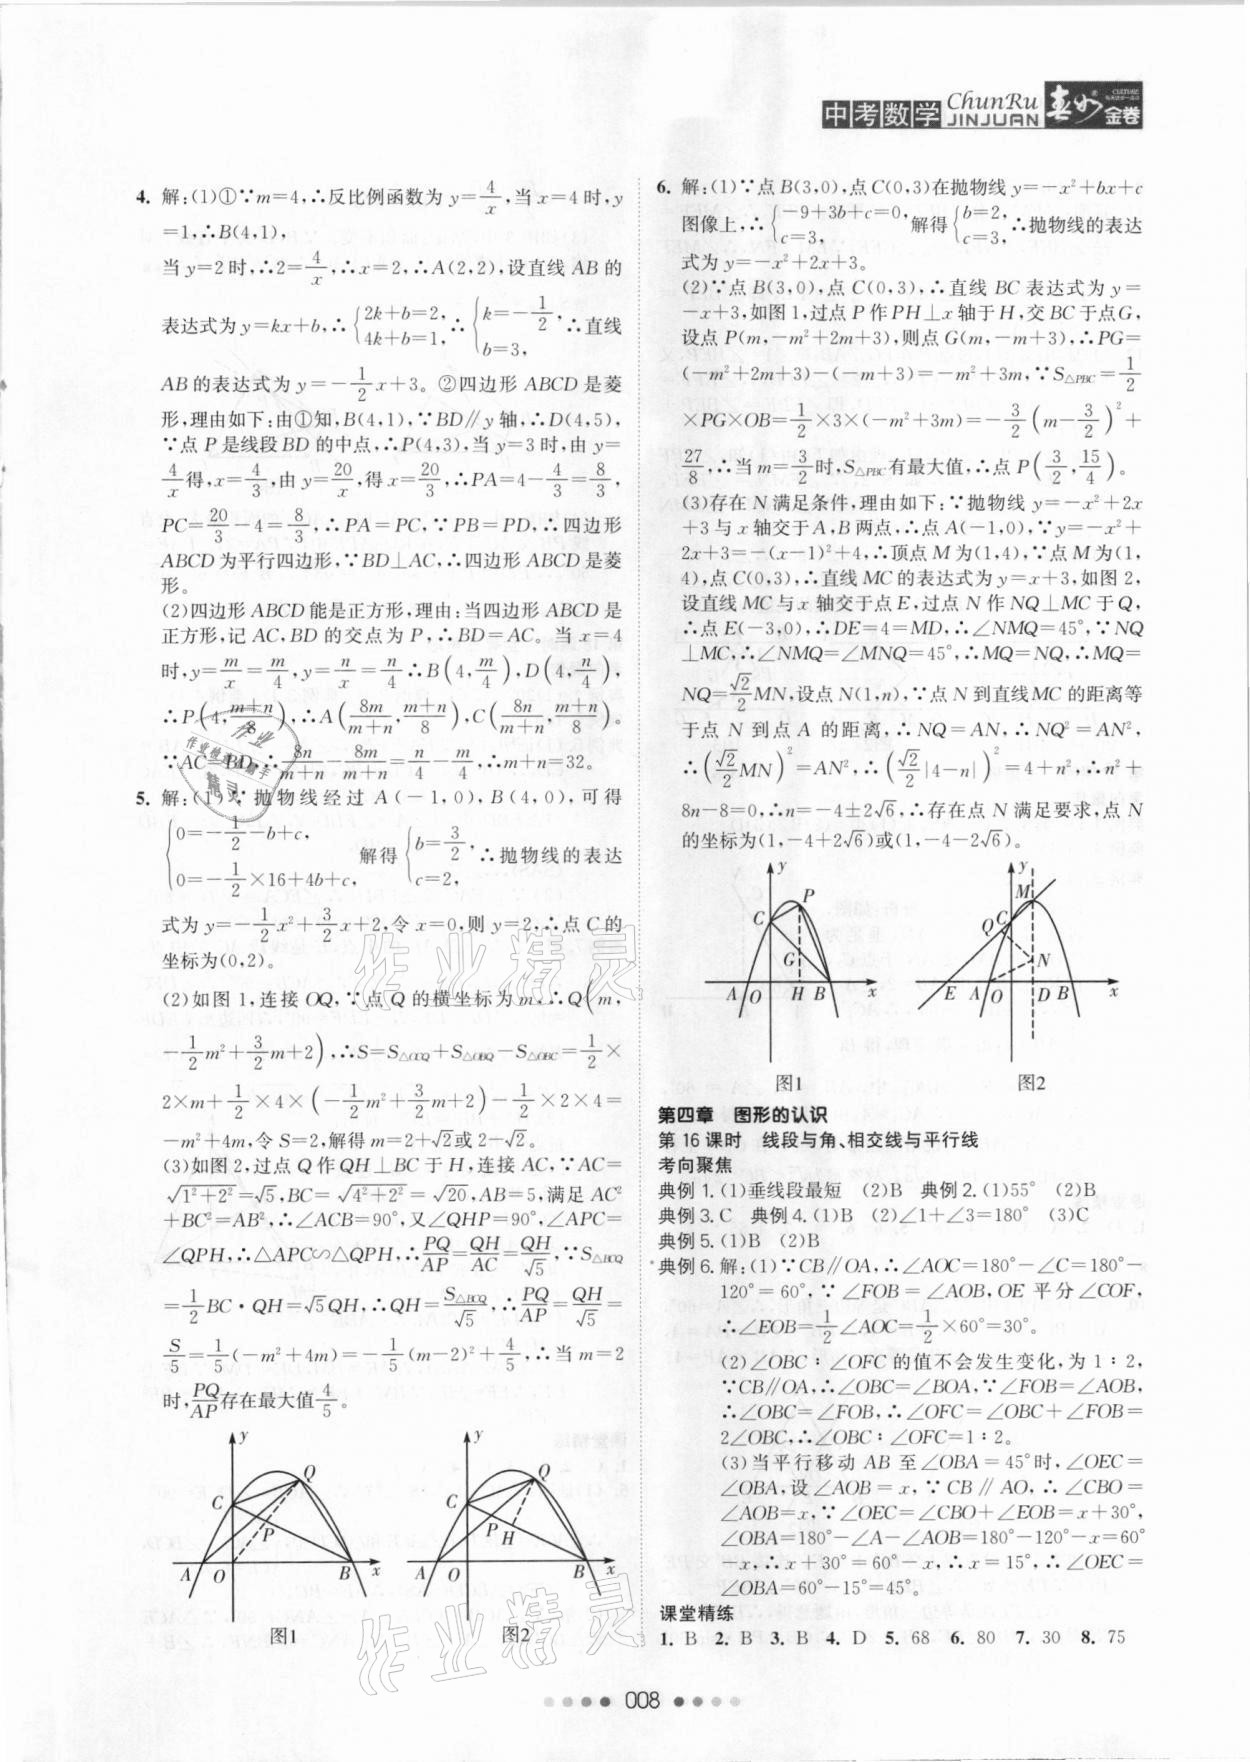 中考数学 ChunRu JINJUAN 春如金卷
4. 解:(1)①∵m=4,∴反比例函数为 y=4/x,当 x=4 时,y
=1,∴B(4,1),
当 y=2 时,∴2=4/x,∴x=2,∴A(2,2),设直线 AB 的
表达式为 y=kx+b,∴{2k+b=2, 4k+b=1,∴{k=-1/2, b=3,∴直线
AB 的表达式为 y=-1/2x+3。②四边形 ABCD 是菱
形,理由如下:由①知,B(4,1),∵BD∥y 轴,∴D(4,5),
∵点 P 是线段 BD 的中点,∴P(4,3),当 y=3 时,由 y=
4/x得,x=4/3,由 y=20/x,得 x=20/3,∴PA=4-4/3=8/3,
PC=20/3-4=8/3,∴PA=PC,∵PB=PD,∴四边形
ABCD 为平行四边形,∵BD⊥AC,∴四边形 ABCD 是菱
形。
(2)四边形 ABCD 能是正方形,理由:当四边形 ABCD 是
正方形,记 AC,BD 的交点为 P,∴BD=AC。当 x=4
时,y=m/x=m/4,y=n/x=n/4∴B(4,m/4),D(4,n/4),
∴P(4,(m+n)/8),∴A(8m/(m+n),(m+n)/8),C(8n/(m+n),(m+n)/8)。
∵AC=BD,∴8n/(m+n)-8m/(m+n)=n/4-m/4,∴m+n=32。
5. 解:(1)∵抛物线经过 A(-1,0),B(4,0),可得
{0=-1/2-b+c, 0=-1/2×16+4b+c, 解得{b=3/2, c=2,∴抛物线的表达
式为 y=-1/2x²+3/2x+2,令 x=0,则 y=2,∴点 C 的
坐标为(0,2)。
(2)如图 1,连接 OQ,∵点 Q 的横坐标为 m,∴Q(m,
-1/2m²+3/2m+2),∴S=S△OCQ+S△OBQ-S△OBC=1/2×
2×m+1/2×4×(-1/2m²+3/2m+2)-1/2×2×4=
-m²+4m,令 S=2,解得 m=2+√2或 2-√2。
(3)如图 2,过点 Q 作 QH⊥BC 于 H,连接 AC,∵AC=
√(1²+2²)=√5,BC=√(4²+2²)=√20,AB=5,满足 AC²
+BC²=AB²,∴∠ACB=90°,又∠QHP=90°,∠APC=
∠QPH,∴△APC∽△QPH,∴PQ/AP=QH/AC=QH/√5,∵S△BCQ
=1/2BC·QH=√5QH,∴QH=S△BCQ/√5,∴PQ/AP=QH/√5=
S/5=1/5(-m²+4m)=-1/5(m-2)²+4/5,∴当 m=2
时,PQ/AP存在最大值4/5。
y C Q P A O B x
图1
y C Q P H A O B x
图2
6. 解:(1)∵点 B(3,0),点 C(0,3)在抛物线 y=-x²+bx+c
图像上,∴{-9+3b+c=0, c=3, 解得{b=2, c=3,∴抛物线的表达
式为 y=-x²+2x+3。
(2)∵点 B(3,0),点 C(0,3),∴直线 BC 表达式为 y=
-x+3,如图 1,过点 P 作 PH⊥x 轴于 H,交 BC 于点 G,
设点 P(m,-m²+2m+3),则点 G(m,-m+3),∴PG=
(-m²+2m+3)-(-m+3)=-m²+3m,∵S△PBC=1/2
×PG×OB=1/2×3×(-m²+3m)=-3/2(m-3/2)²+
27/8,∴当 m=3/2时,S△PBC有最大值,∴点 P(3/2,15/4)。
(3)存在 N 满足条件,理由如下:∵抛物线 y=-x²+2x
+3 与 x 轴交于 A,B 两点,∴点 A(-1,0),∵y=-x²+
2x+3=-(x-1)²+4,∴顶点 M 为(1,4),∵点 M 为(1,
4),点 C(0,3),∴直线 MC 的表达式为 y=x+3,如图 2,
设直线 MC 与 x 轴交于点 E,过点 N 作 NQ⊥MC 于 Q,
∴点 E(-3,0),∴DE=4=MD,∴∠NMQ=45°,∵NQ
⊥MC,∴∠NMQ=∠MNQ=45°,∴MQ=NQ,∴MQ=
NQ=√2/2MN,设点 N(1,n),∵点 N 到直线 MC 的距离等
于点 N 到点 A 的距离,∴NQ=AN,∴NQ²=AN²,
∴(√2/2MN)²=AN²,∴(√2/2|4-n|)²=4+n²,∴n²+
8n-8=0,∴n=-4±2√6,∴存在点 N 满足要求,点 N
的坐标为(1,-4+2√6)或(1,-4-2√6)。
y C P G A O H B x
图1
y M Q C N E A O D B x
图2
第四章 图形的认识
第 16 课时 线段与角、相交线与平行线
考向聚焦
典例 1. (1)垂线段最短 (2)B 典例 2. (1)55° (2)B
典例 3. C 典例 4. (1)B (2)∠1+∠3=180° (3)C
典例 5. (1)B (2)B
典例 6. 解:(1)∵CB∥OA,∴∠AOC=180°-∠C=180°-
120°=60°,∵∠FOB=∠AOB,OE 平分∠COF,
∴∠EOB=1/2∠AOC=1/2×60°=30°。
(2)∠OBC∶∠OFC 的值不会发生变化,为 1∶2,
∵CB∥OA,∴∠OBC=∠BOA,∵∠FOB=∠AOB,
∴∠OBC=∠FOB,∴∠OFC=∠OBC+∠FOB=
2∠OBC,∴∠OBC∶∠OFC=1∶2。
(3)当平行移动 AB 至∠OBA=45°时,∠OEC=
∠OBA,设∠AOB=x,∵CB∥AO,∴∠CBO=
∠AOB=x,∵∠OEC=∠CBO+∠EOB=x+30°,
∠OBA=180°-∠A-∠AOB=180°-120°-x=60°
-x,∴x+30°=60°-x,∴x=15°,∴∠OEC=
∠OBA=60°-15°=45°。
课堂精练
1. B 2. B 3. B 4. D 5. 68 6. 80 7. 30 8. 75
008
作业精灵
作业精灵
作业
作业检查小助手
精灵